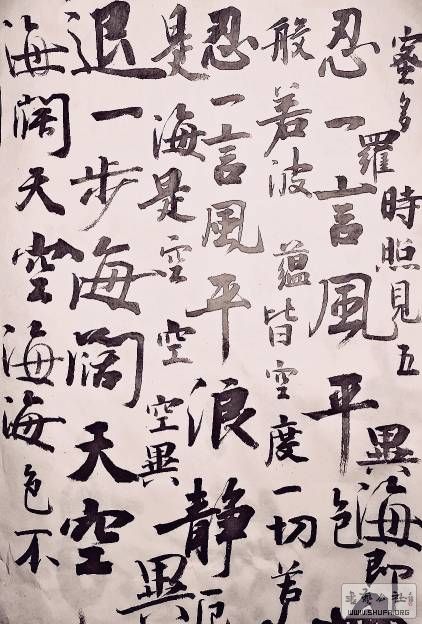 蜜多羅時照見五
異海即
忍一言風平色
般若波蘊皆空度一切苦
忍一言風平浪靜厄
是海是空空空異異
退一步海闊天空
海闊天空海海色不
WWW.SHUFA.ORG